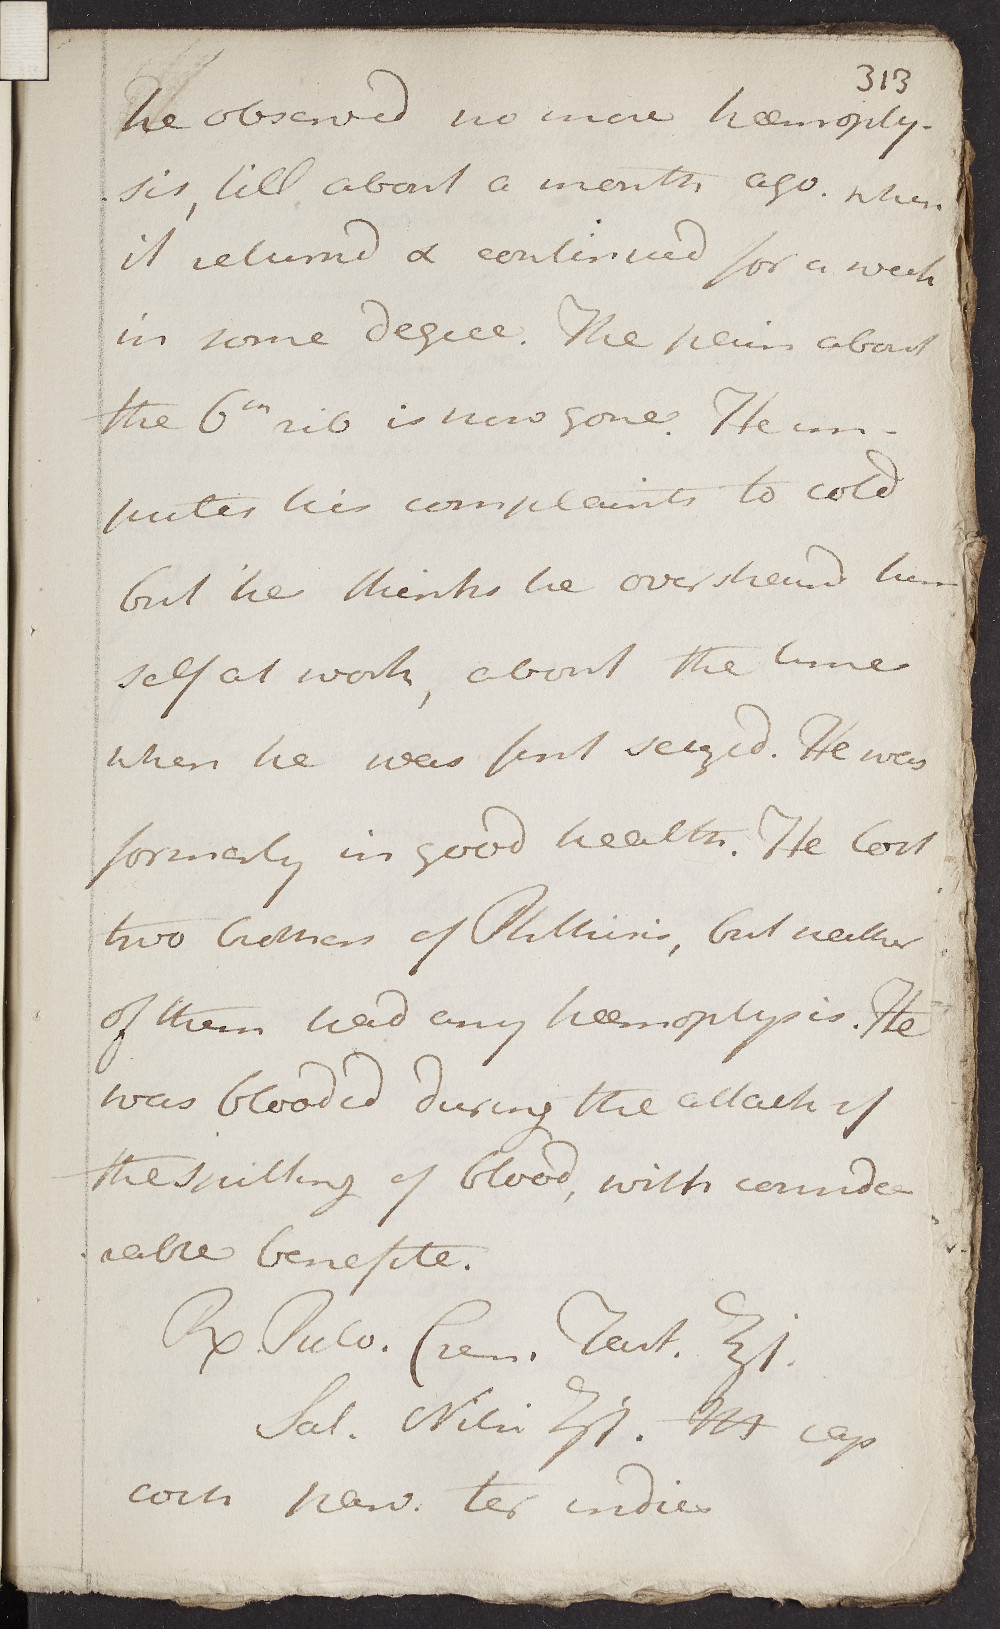 313
he observed no more hæmoply-
sis, till about a month ago. when
it returnd & continued for a week
in some degree. The pain about
the 6th rib is now gone. He im-
putes his complaints to cold
but he thinks he overstraind him
self at work, about the time
when he was first seized. He was
formerly in good health. He lost
two brothers of Phthisis, but neither
of them had any hæmoptysis. He
was blooded during the attack of
the spitting of blood, with conside
rable benefite.
Rx Pulv. Crem. Tart. ℥j.
Sal. Nitri ʒj. M cap
coch parv. ter indies